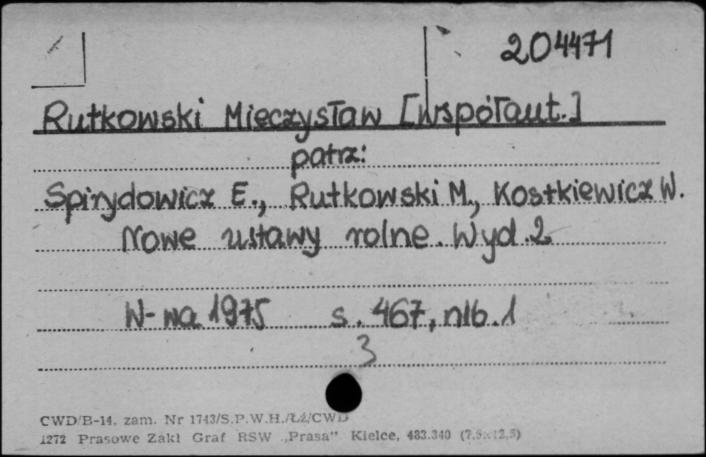 204471
Rutkowski Mieczysław [współaut.]
patrz:
Spirydowicz E., Rutkowski M., Kostkiewicz W.
Nowe ustawy rolne. Wyd. 2
W-wa 1975 s. 467, nlb. 1
3
CWD/B-14. zam. Nr 1743/S.P.W.H./Łź/CWD
1272 Prasowe Zakł Graf RSW „Prasa" Kielce, 483.340 (7,5x12,5)